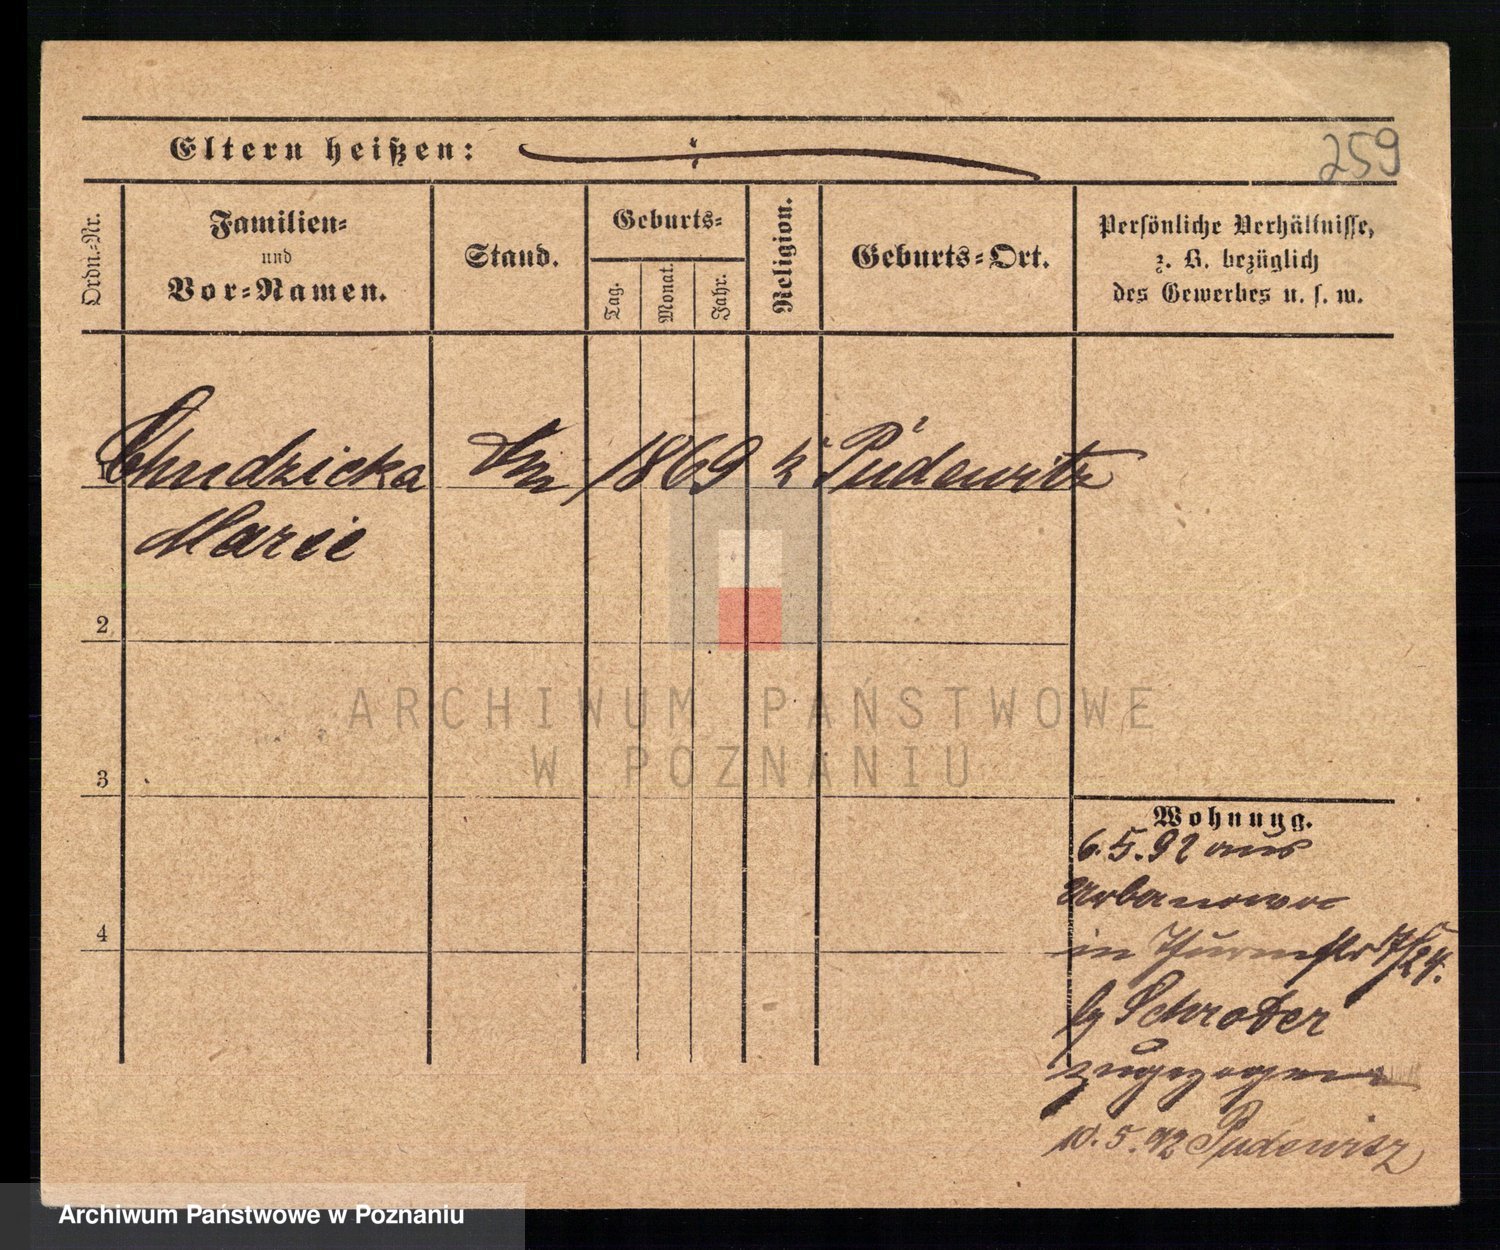 Eltern heißen:
259
Ordn.-Nr.
Familien-
und
Vor-Namen.
Stand.
Geburts-
Tag.
Monat.
Jahr.
Religion.
Geburts-Ort.
Persönliche Verhältnisse,
z. B. bezüglich
des Gewerbes u. s. w.
Chudzicka
1869
k
Pudewitz
Marie
2
3
4
ARCHIWUM PAŃSTWOWE
W POZNANIU
Wohnung.
6.5.92 aus
Urbanowo
in Thurmstr 17/24.
Schroder
zugezogen
10.5.92 Pudewitz
Archiwum Państwowe w Poznaniu